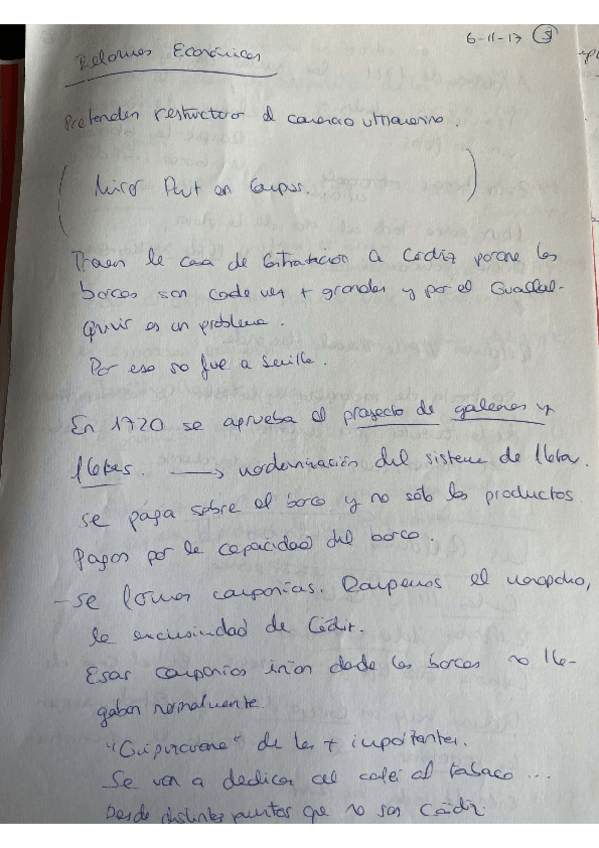 6-11-17 3
Reformas Económicas
Pretenden restructurar el comercio ultramarino.
(Mirar Powt en Campus.)
Traen la casa de Contratación a Cádiz porque los
barcos son cada vez + grandes y por el Guadal-
quivir es un problema.
Por eso no fue a Sevilla.
En 1720 se aprueba el proyecto de galeones y
flotas. → modernización del sistema de flota.
se paga sobre el barco y no sólo los productos
Pagas por la capacidad del barco.
- se forman compañías. Rompemos el monopolio,
la exclusividad de Cádiz.
Esas compañías irían donde los barcos no lle-
gaban normalmente.
"Guipuzcoana" de las + importantes.
Se van a dedicar al café al tabaco ...
Desde distintos puntos que no son Cádiz.